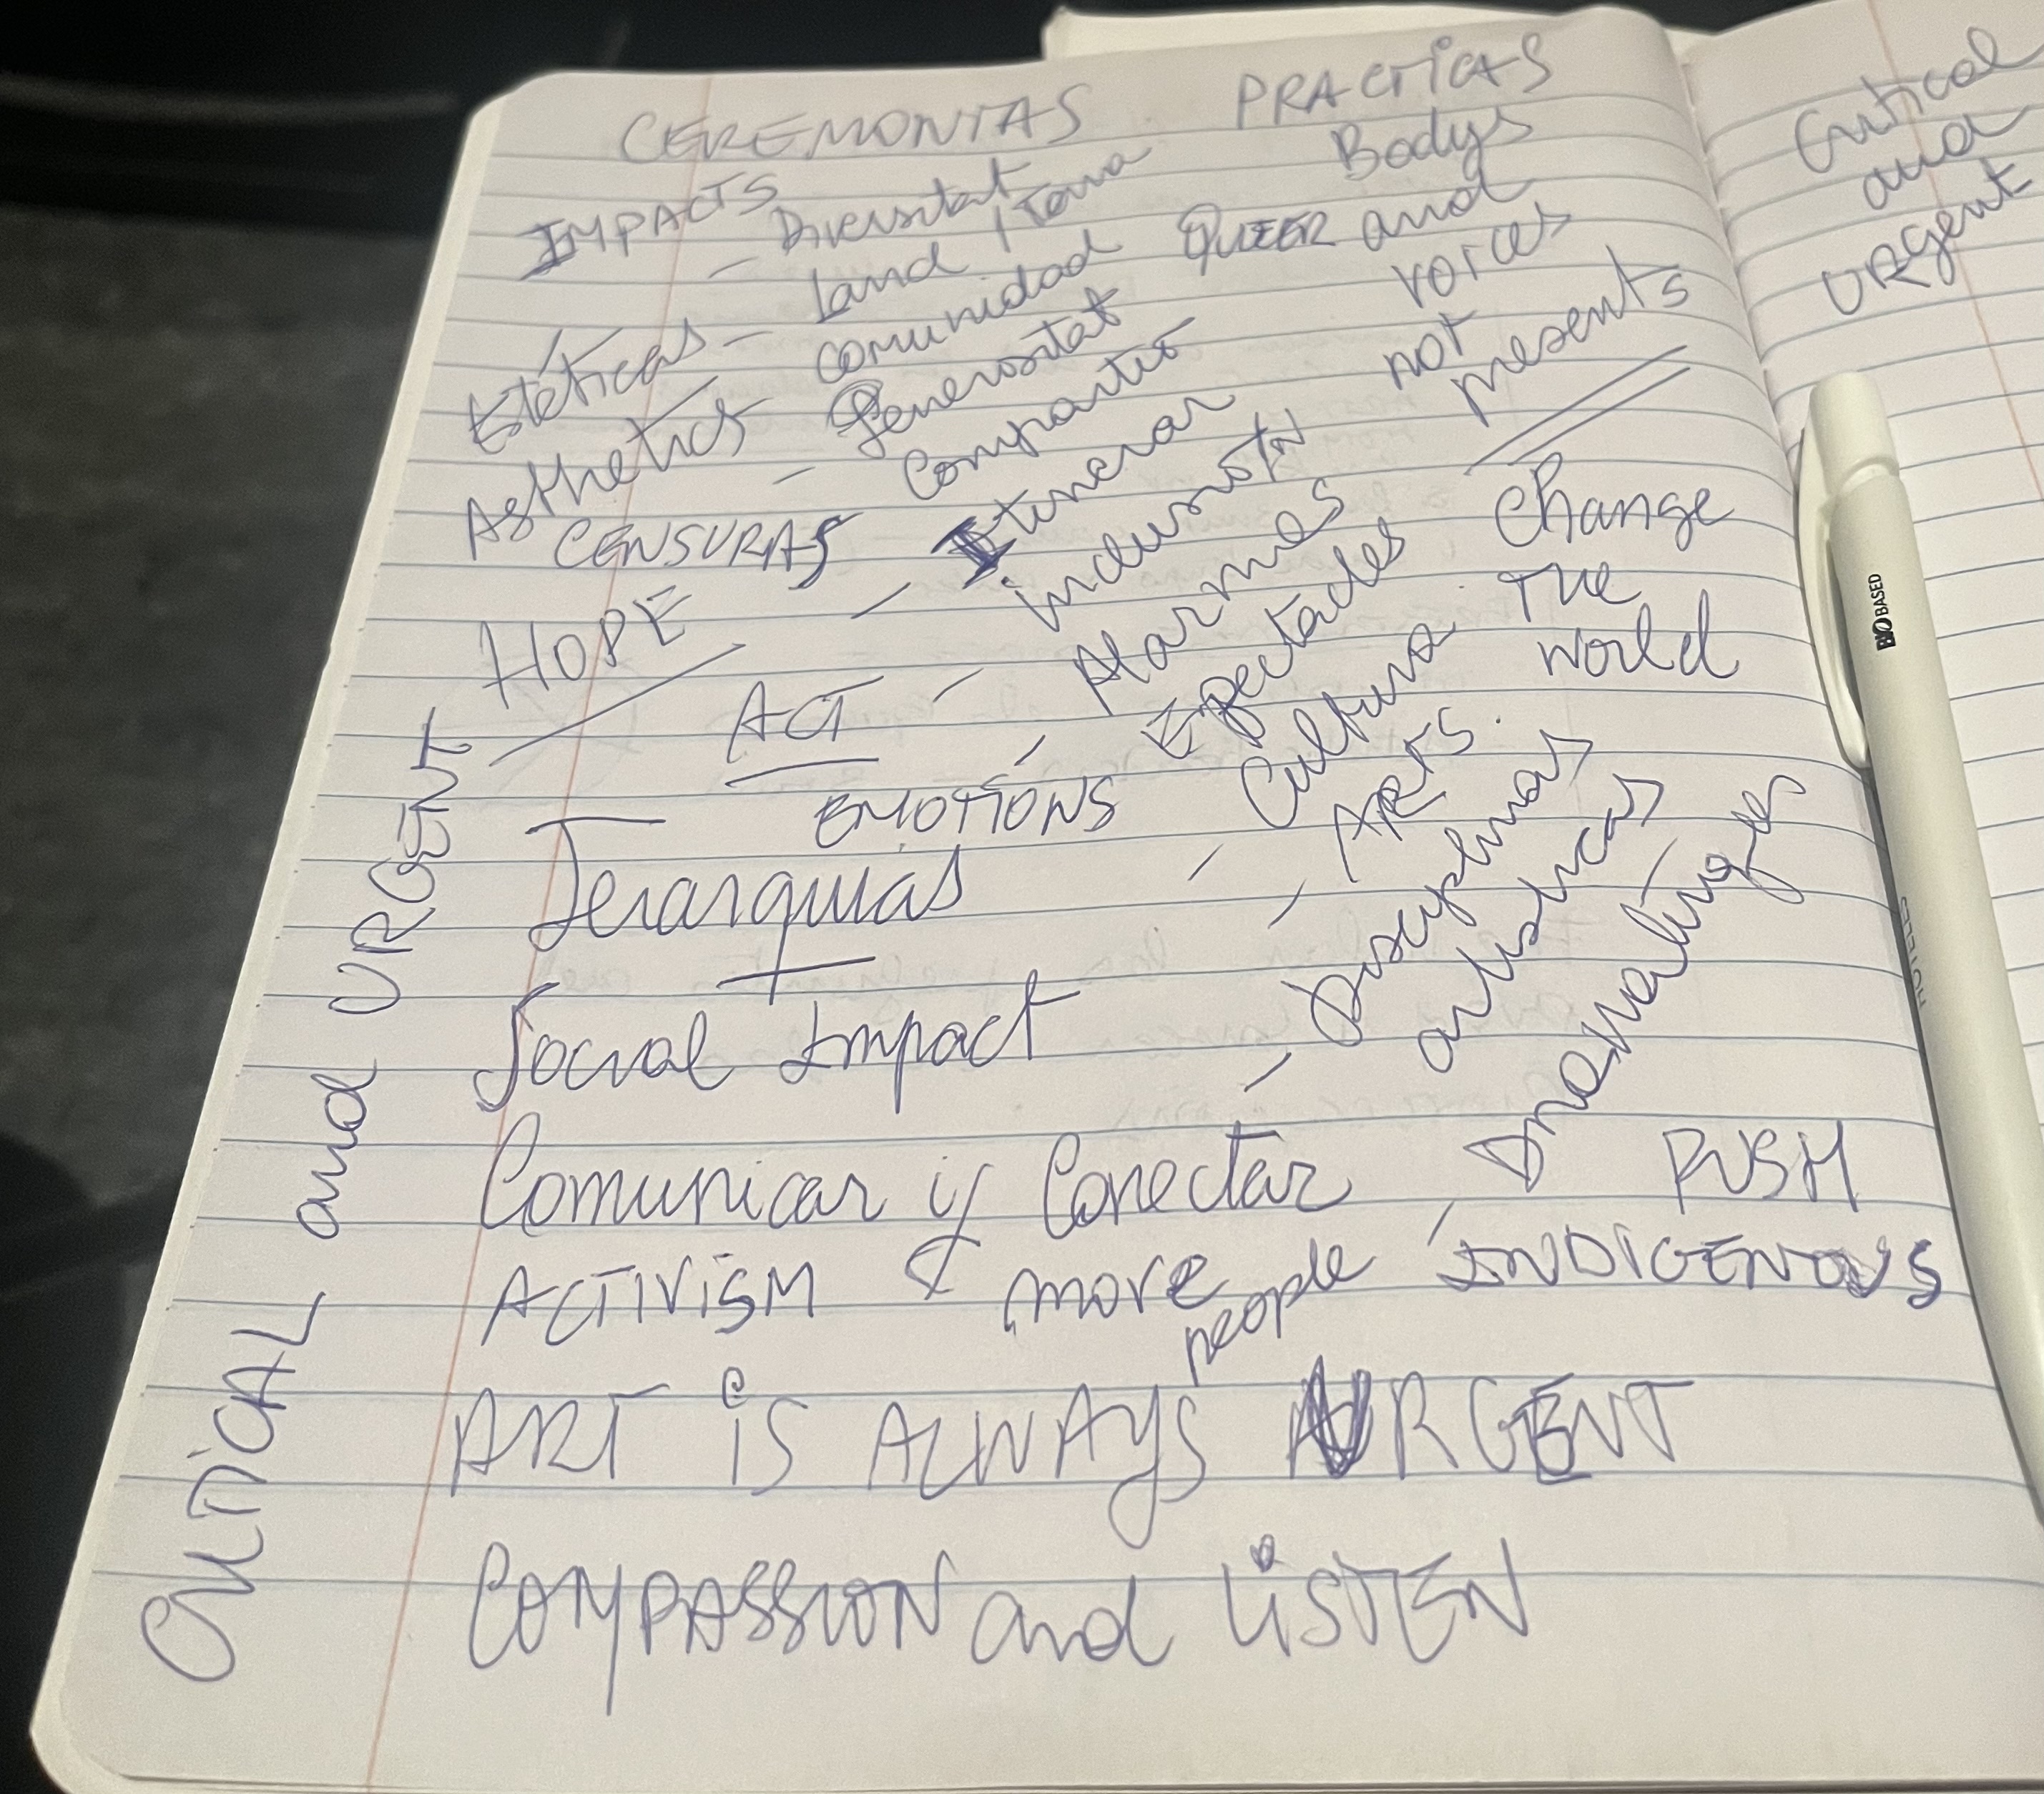 CEREMONIAS PRACTICAS
IMPACTS
- Diversitat
Land / Terra
Estéticas - comunidad
Asthetics - Generositat
CENSURAS - Compartir
HOPE - Itinerar
inclusión
ACT - Alarmes
EMOTIONS - Espectacles
- Cultura
- ARTS.
- Disciplinas
artisticas
Bodys
QUEER and
voices
not
presents
Change
The
World
Jerarquias
+
Social Impact
Comunicar y Conectar
ACTIVISM & more people
PUSH
- INDIGENOUS
ART is ALWAYS URGENT
COMPASSION and LiSTEN
CRITICAL and URGENT
Critical
and
URgent
BIOBASED
HOTELS